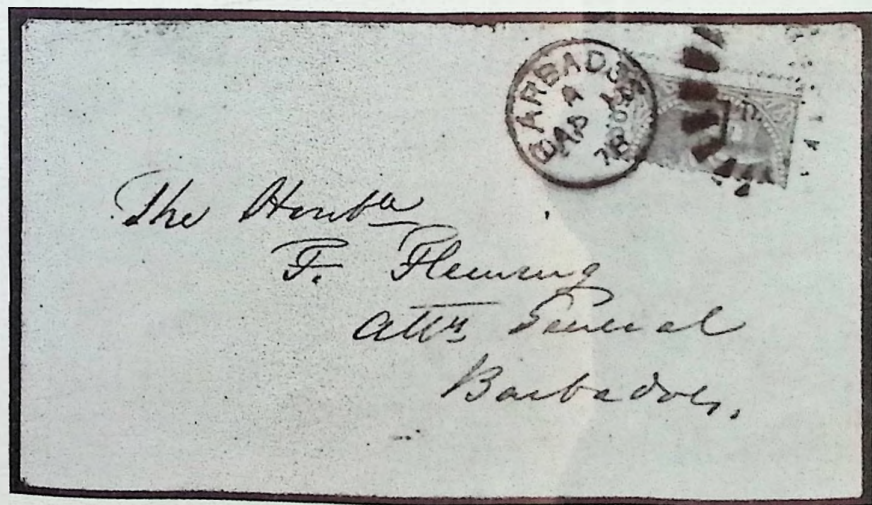 BARBADOS
A
78
The Honble
F. Fleming
Atty General
Barbados.